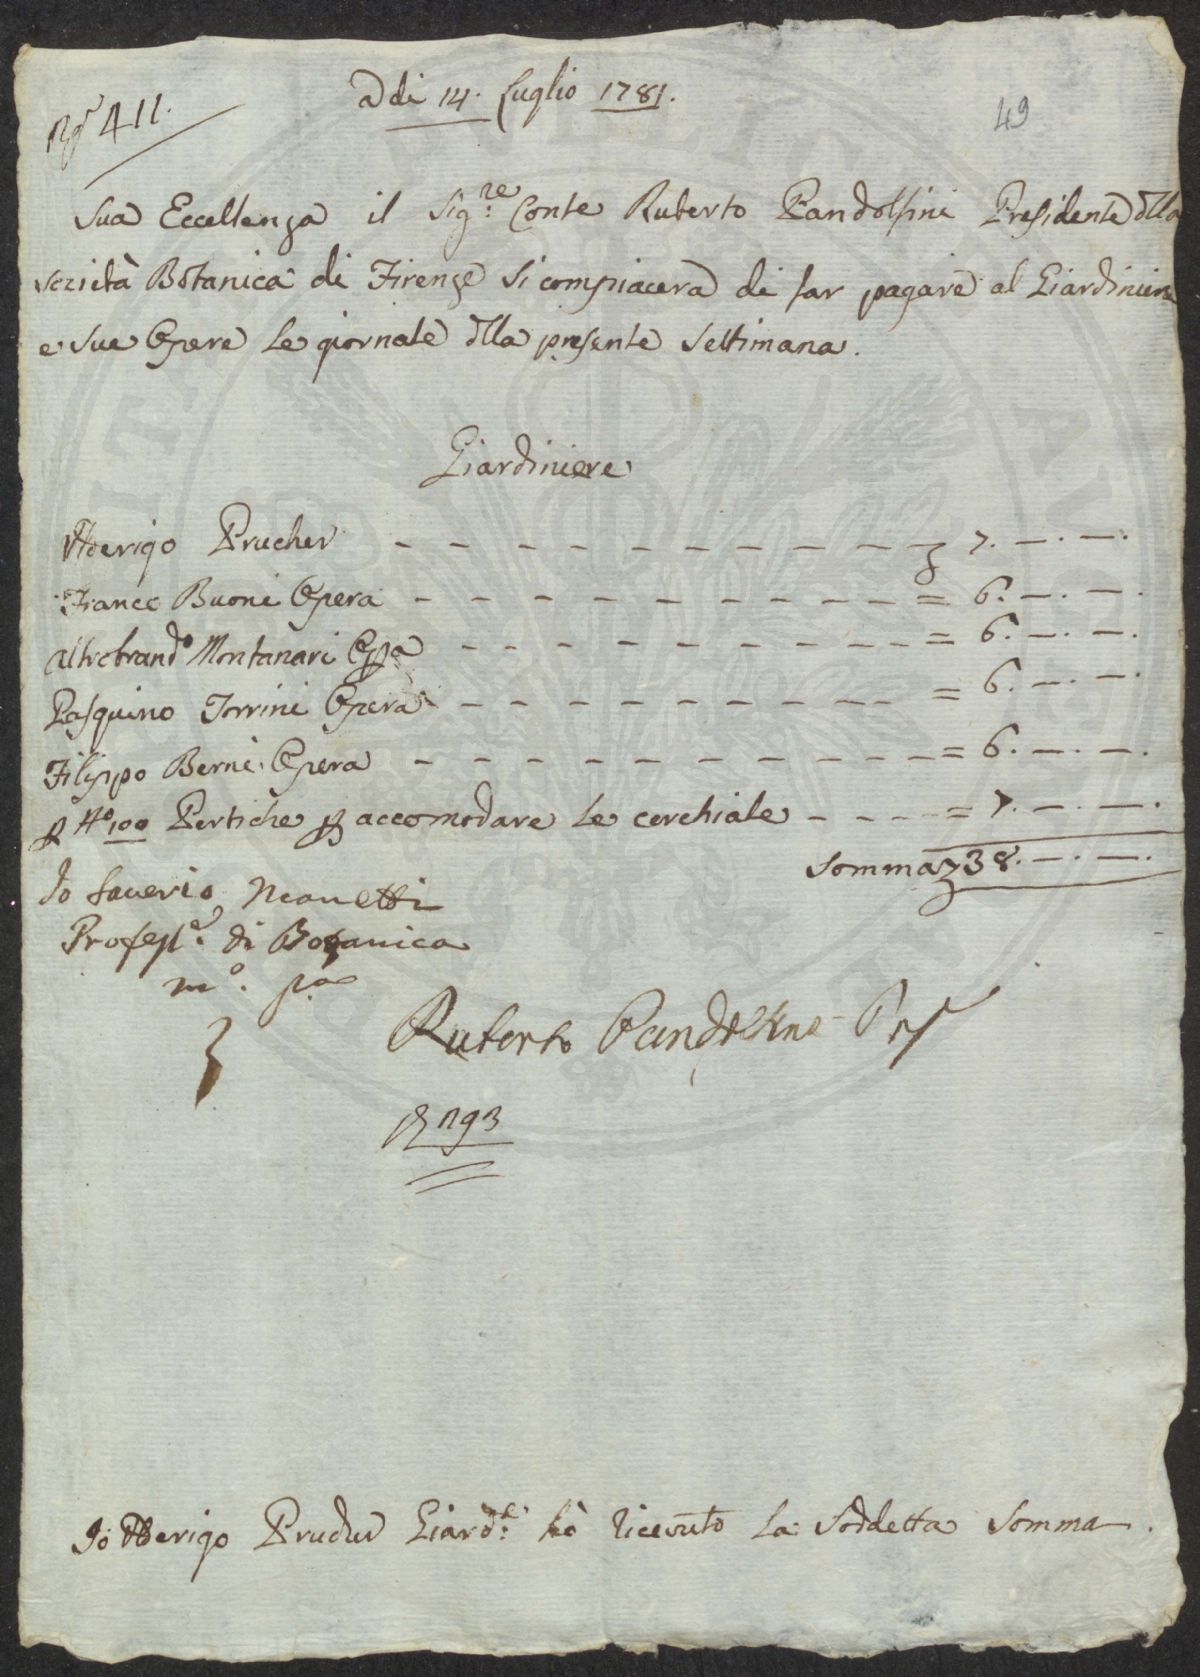 adi 14. Luglio 1781.
49
Nº 411.
Sua Eccellenza il Sig:re Conte Ruberto Pandolfini Presidente dlla
Sozietà Botanica di Firenze si compiacera di far pagare al Giardiniere
e sue Opere le giornate dlla presente Settimana.
Giardiniere
Aerigo Prucher - - - - - - - - - 7. —. —.
Franco Buoni Opera - - - - - - - - - = 6. —. —.
Altrobrando Montanari Opa - - - - - - - - = 6. —. —.
Pasquino Torrini Opera - - - - - - - - = 6. —. —.
Filippo Berni Opera - - - - - - - - - = 6. —. —.
p Nº 100 Pertiche p accomodare le cerchiate - - - - = 7. —. —.
Somma 38. —. —.
Io Saverio Manetti
Profess.e di Botanica
mº. pa
Ruberto Pandolfini Pres
Io Aerigo Prucher Giard:e hò ricevuto la Soddetta Somma.